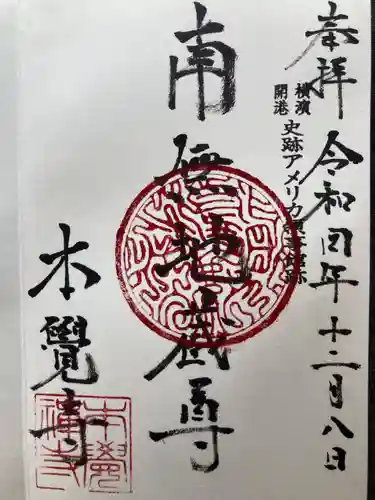 奉拝
横濱
開港
史跡アメリカ領事館跡
令和四年十二月八日
南無地蔵尊
本覺寺